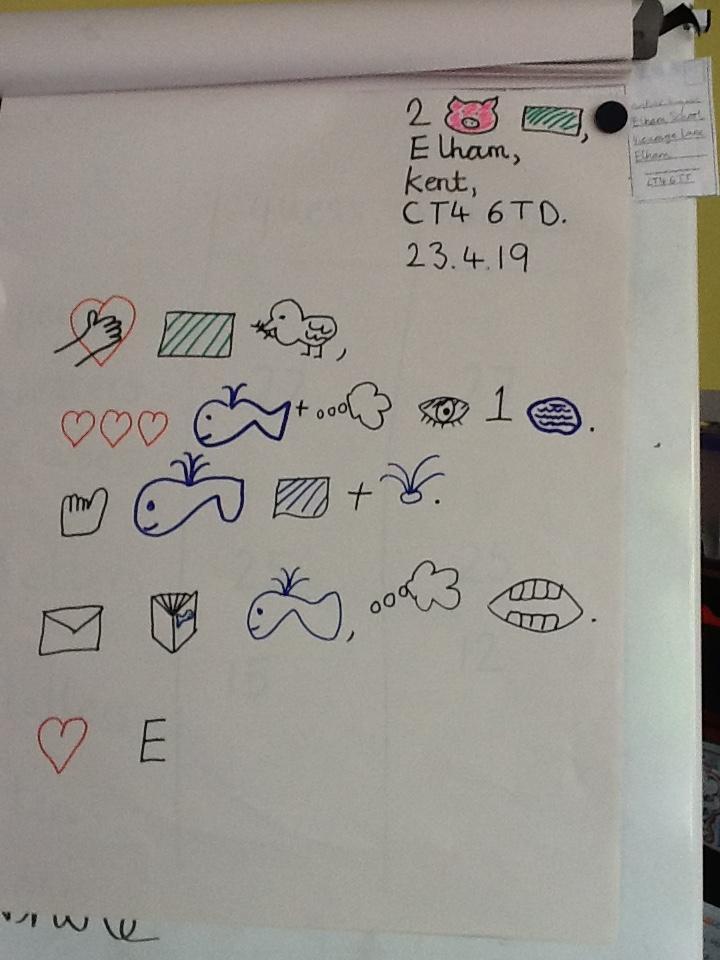 2 ,
Elham,
Kent,
CT4 6TD.
23.4.19
Elham School
Vicarage Lane
Elham
CT4 6TT
,
+ 1 .
+ .
, .
E